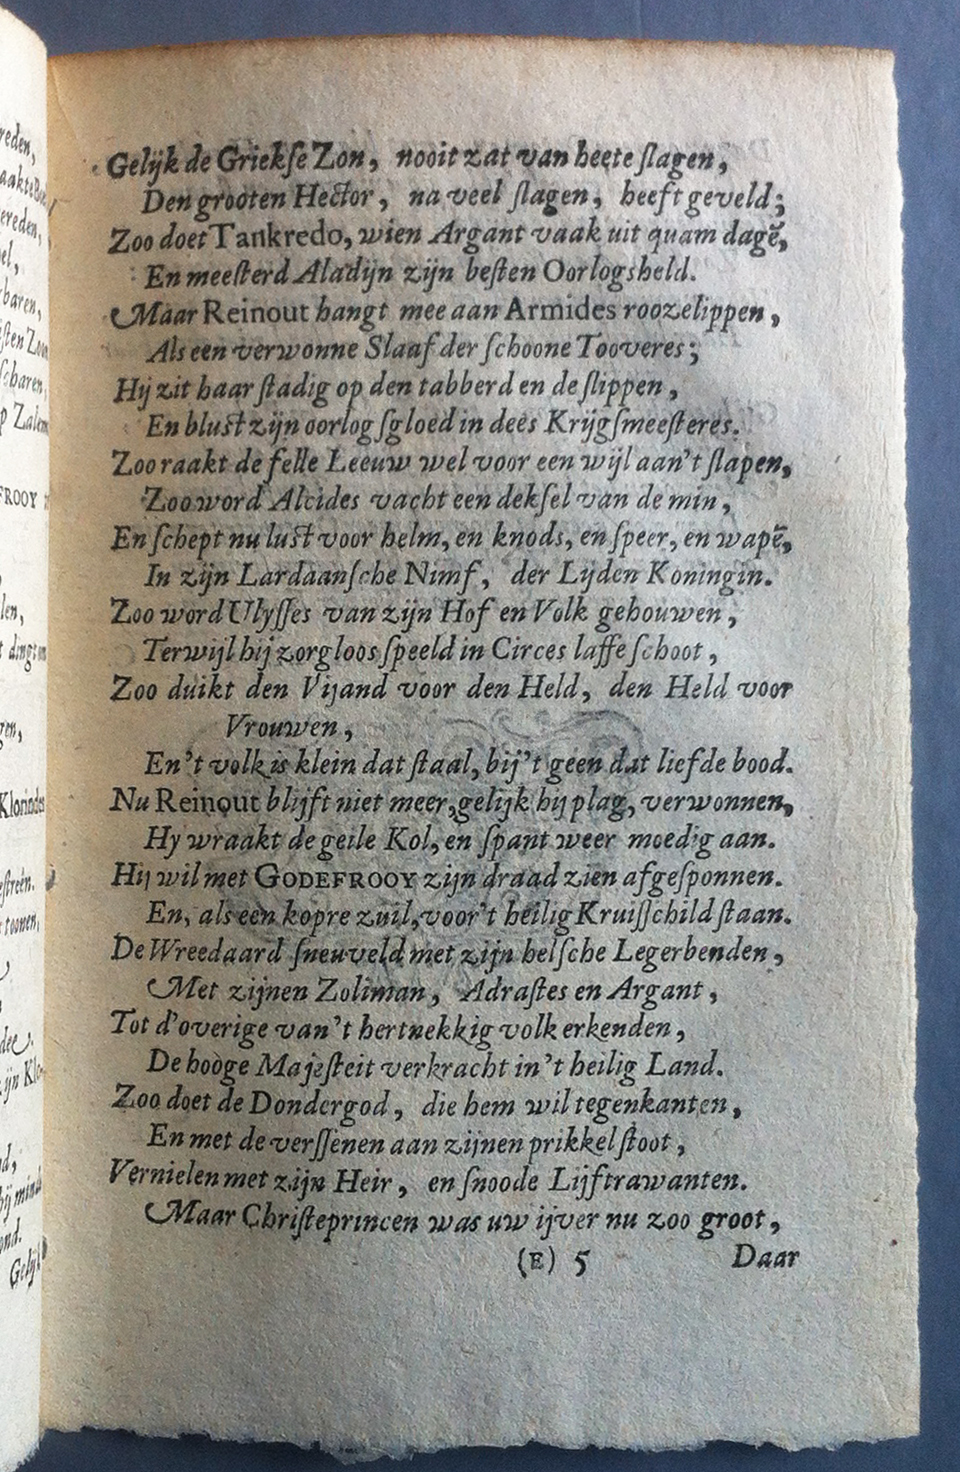 Gelijk de Griekſe Zon, nooit zat van heete ſlagen,
Den grooten Hector, na veel ſlagen, heeft geveld;
Zoo doet Tankredo, wien Argant vaak uit quam dagē,
En meeſterd Aladijn zijn beſten Oorlogsheld.
Maar Reinout hangt mee aan Armides roozelippen,
Als een verwonne Slaaf der ſchoone Tooveres;
Hij zit haar ſtadig op den tabberd en de ſlippen,
En bluſt zijn oorlogſgloed in dees Krijgſmeeſteres.
Zoo raakt de felle Leeuw wel voor een wijl aan't ſlapen,
Zoo word Alcides vacht een dekſel van de min,
En ſchept nu luſt voor helm, en knods, en ſpeer, en wapē,
In zijn Lardaanſche Nimf, der Lijden Koningin.
Zoo word Ulyſſes van zijn Hof en Volk gehouwen,
Terwijl hij zorgloos ſpeeld in Circes laffe ſchoot,
Zoo duikt den Vijand voor den Held, den Held voor
Vrouwen,
En't volk is klein dat ſtaal, bij't geen dat liefde bood.
Nu Reinout blijft niet meer, gelijk hij plag, verwonnen,
Hy wraakt de geile Kol, en ſpant weer moedig aan.
Hij wil met GODEFROOY zijn draad zien afgeſponnen.
En, als een kopre zuil, voor't heilig Kruiſſchild ſtaan.
De Wreedaard ſneuveld met zijn helſche Legerbenden,
Met zijnen Zoliman, Adraſtes en Argant,
Tot d'overige van't hertnekkig volk erkenden,
De hooge Majeſteit verkracht in't heilig Land.
Zoo doet de Dondergod, die hem wil tegenkanten,
En met de verſſenen aan zijnen prikkel ſtoot,
Vernielen met zijn Heir, en ſnoode Lijftrawanten.
Maar Chriſteprincen was uw ijver nu zoo groot,
(E) 5 Daar